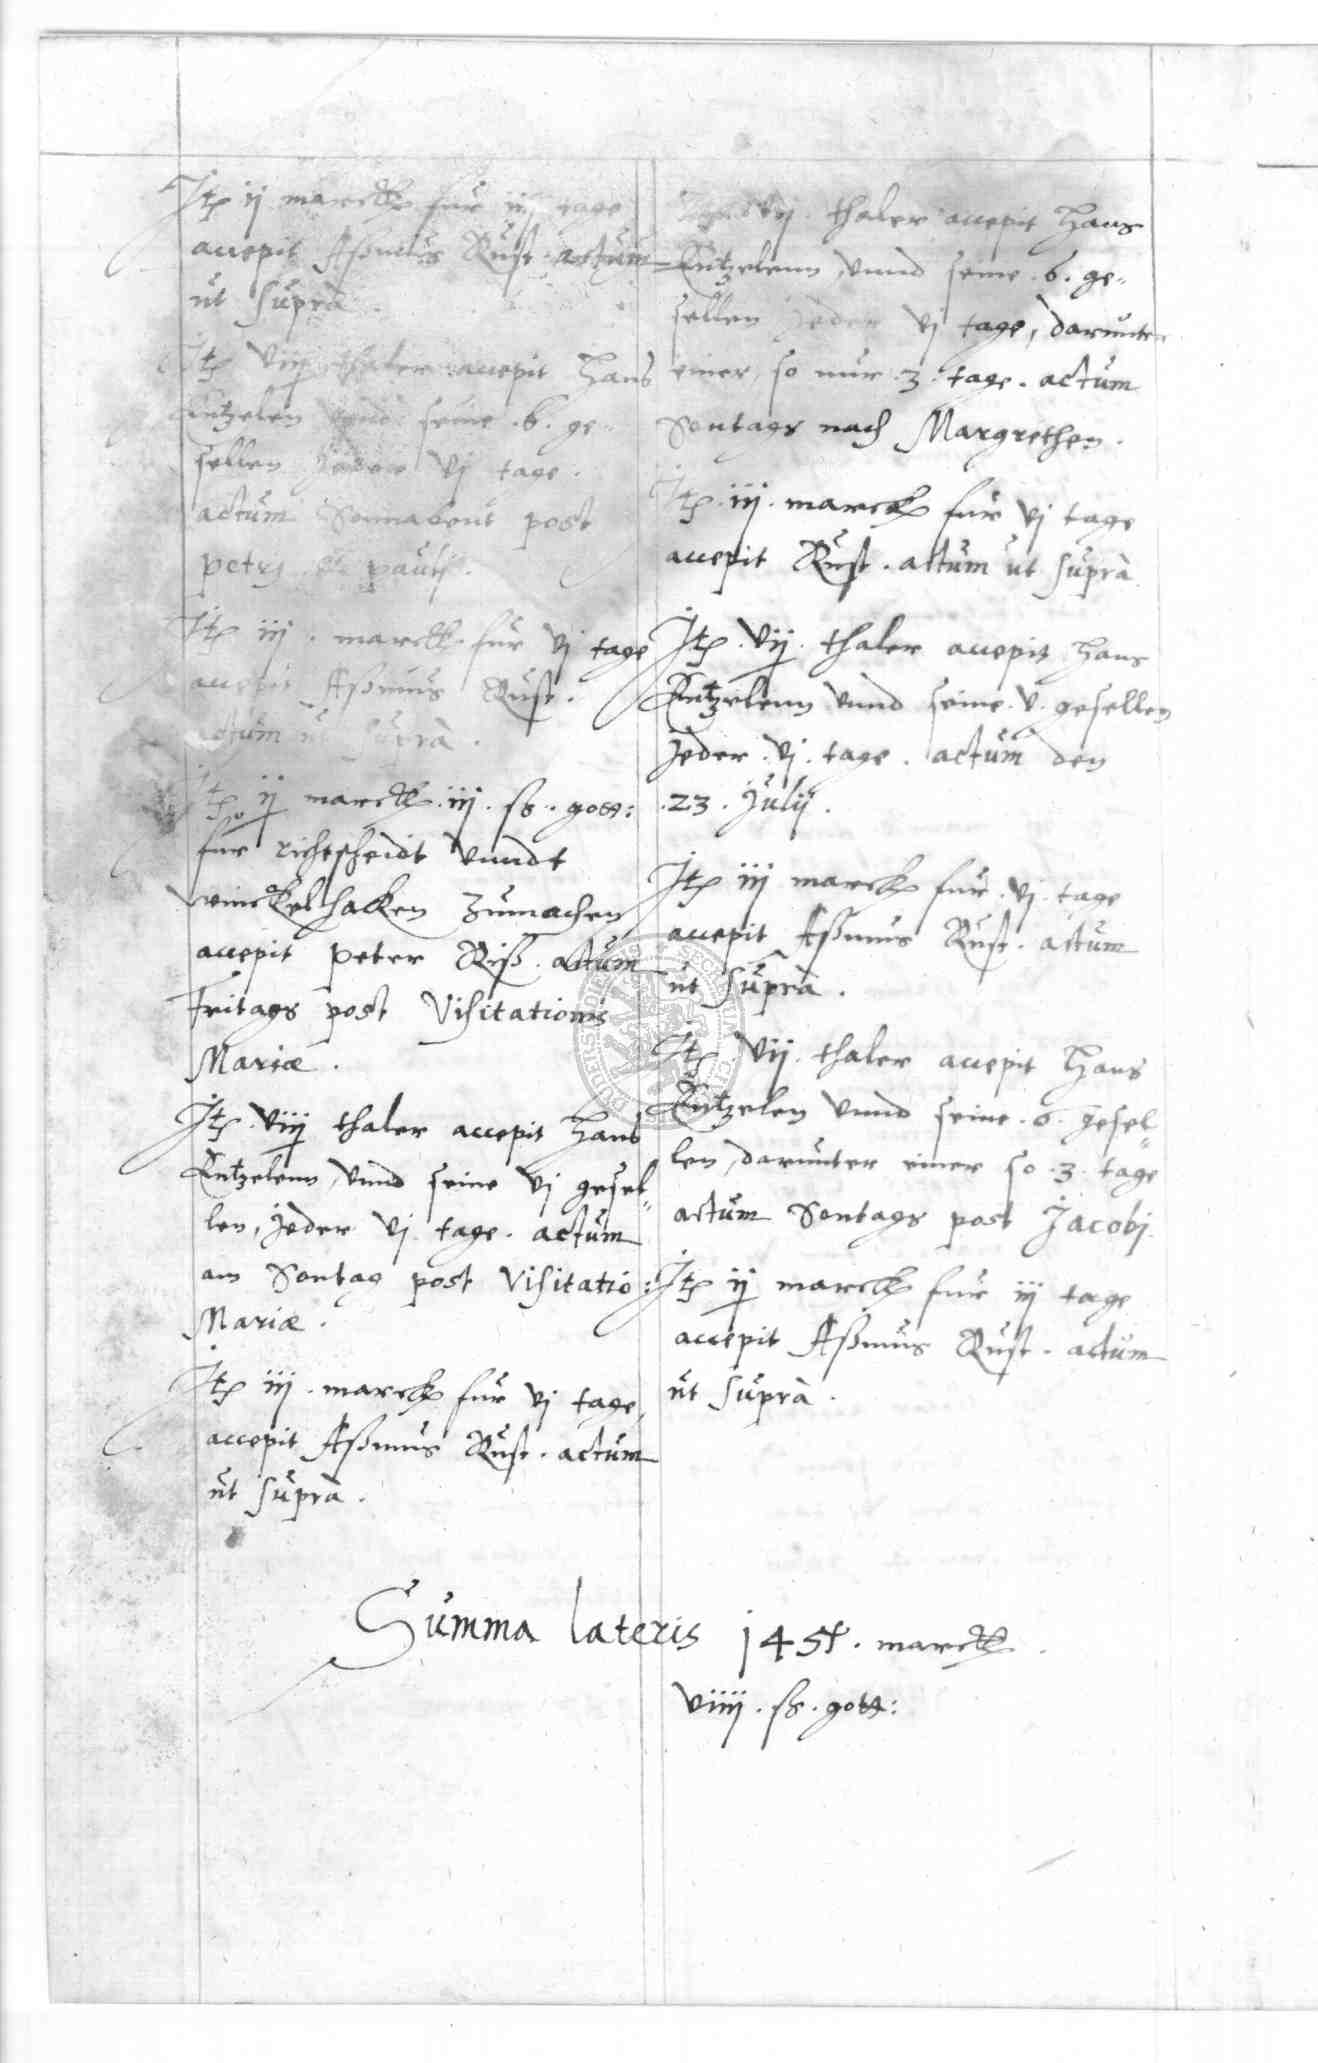 Itē ij marck für iij tage
accepit Aßmus Rust. actum
ut supra.
Itē viij thaler accepit Hans
Entzelen vnnd seine .6. ge-
sellen jeder vj tage.
actum Sonnabent post
petrj & paulj.
Itē iij. marck. für vj tage
accepit Aßmus Rust.
actum ut supra.
Itē ij marck. iij. ß. gott:
fur richtscheidt vnndt
winckelhacken zumachen
accepit Peter Riß. actum
Fritags post Visitationis
Mariæ.
Itē. viij thaler accepit Hans
Entzelenn, vnnd seine vj gesel-
len, jeder vj tage. actum
am Sontag post Visitatio:
Mariæ.
Itē iij. marck für vj tage,
accepit Aßmus Rust. actum
ut supra.
thaler accepit Hans
Entzelenn, vnnd seine .6. ge-
sellen jeder vj tage, darunter
einer, so nur .3. tage. actum
Sontags nach Margrethen.
Itē. iij. marck für vj tage
accepit Rust. actum ut supra
Itē. vij. thaler accepit Hans
Entzelenn vnnd seine. v. gesellen
jeder. vj. tage. actum den
.23. Julij.
Itē iij marck für. vj. tage
accepit Aßmus Rust. actum
ut supra.
Itē vij. thaler accepit Hans
Entzelen vnnd seine .6. gesel-
len, darunter einer so .3. tage
actum Sontags post Jacobj.
Itē ij marck für iij tage
accepit Aßmus Rust. actum
ut supra.
Summa lateris marck
viiij. ß. gott: